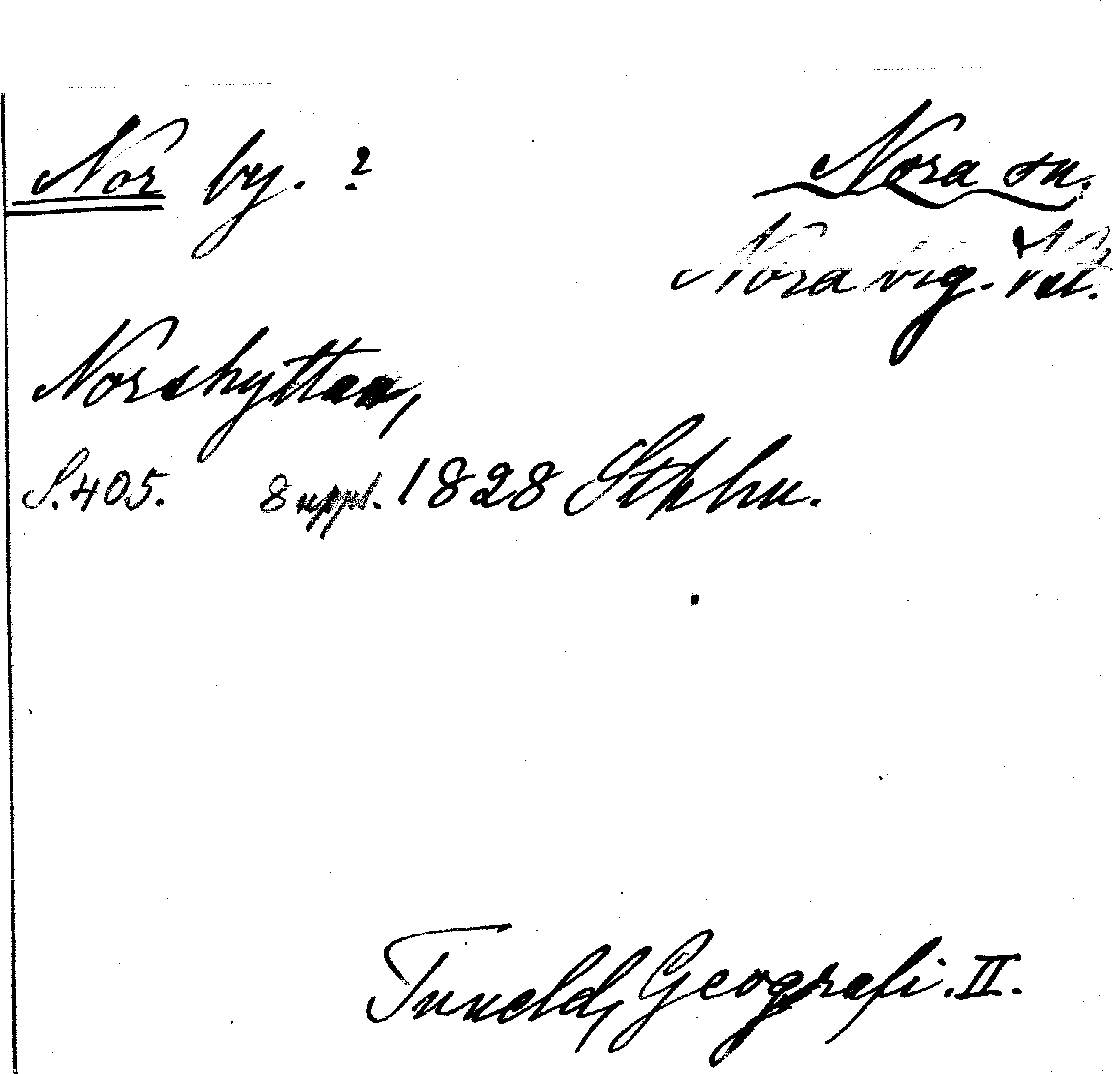 Nor by. ?
Nora sn.
Nora brg. Vstl.
Norshyttan,
S. 405. 8 uppl. 1828 Sthlm.
Tuneld, Geografi. II.